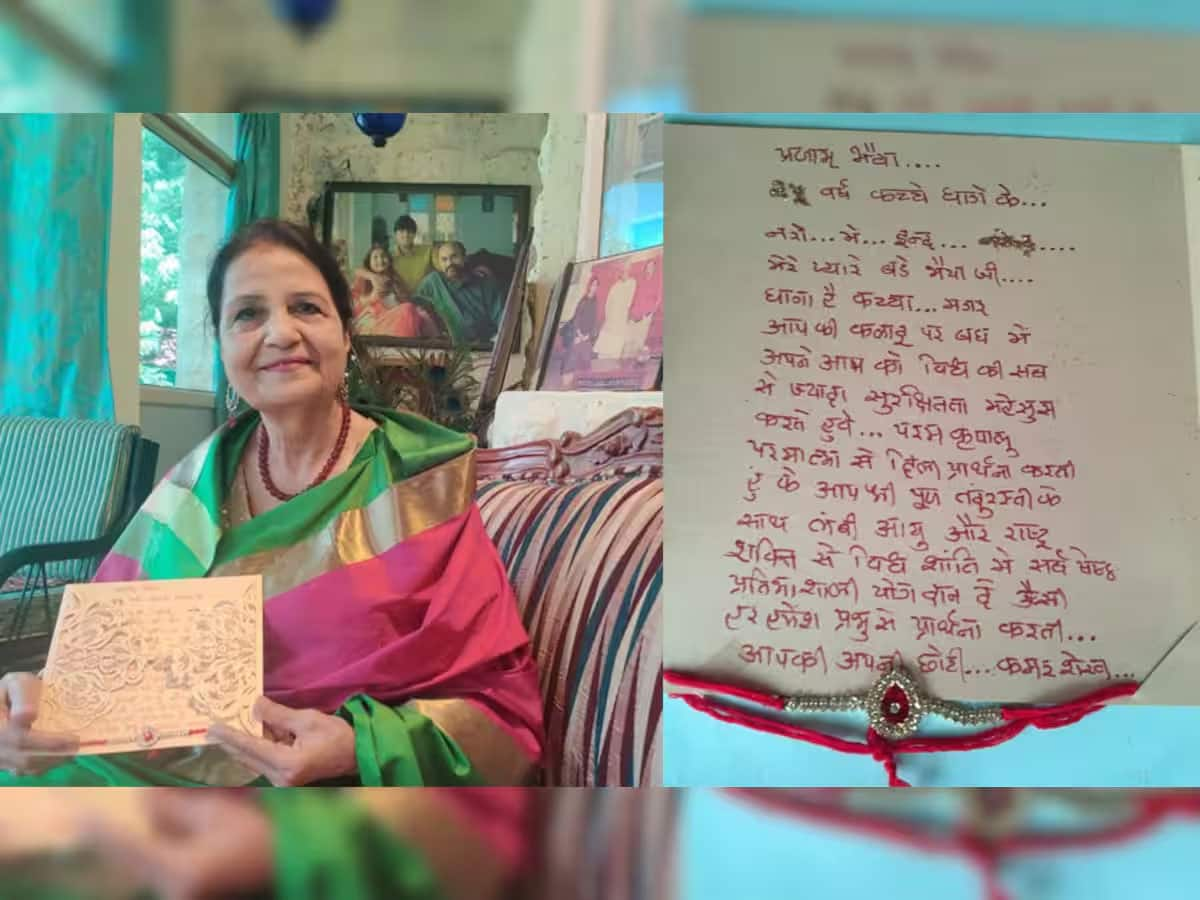 प्रणाम् भैया....
वर्ष कच्चे धागे के...
नरो... मे... इन्द्र... ....
मेरे प्यारे बडे भैया जी....
धागा है कच्चा... मगर
आप की कलाइ पर बंध में
अपने आप को विश्व की सब
से ज्यादा सुरक्षितता महेसुस
करते हुवे... परम कृपालु
परमात्मा से प्रार्थना करती
हुं के आप की तंदुरस्ती के
साथ लंबी आयु और राष्ट्र
शक्ति से विश्व शांति मे सर्व श्रेष्ठ
प्रतिभाशाली दे ऐसी
हर हंमेश प्रभु से प्रार्थना करती...
आपकी अपनी छोटी... कमर शेख...